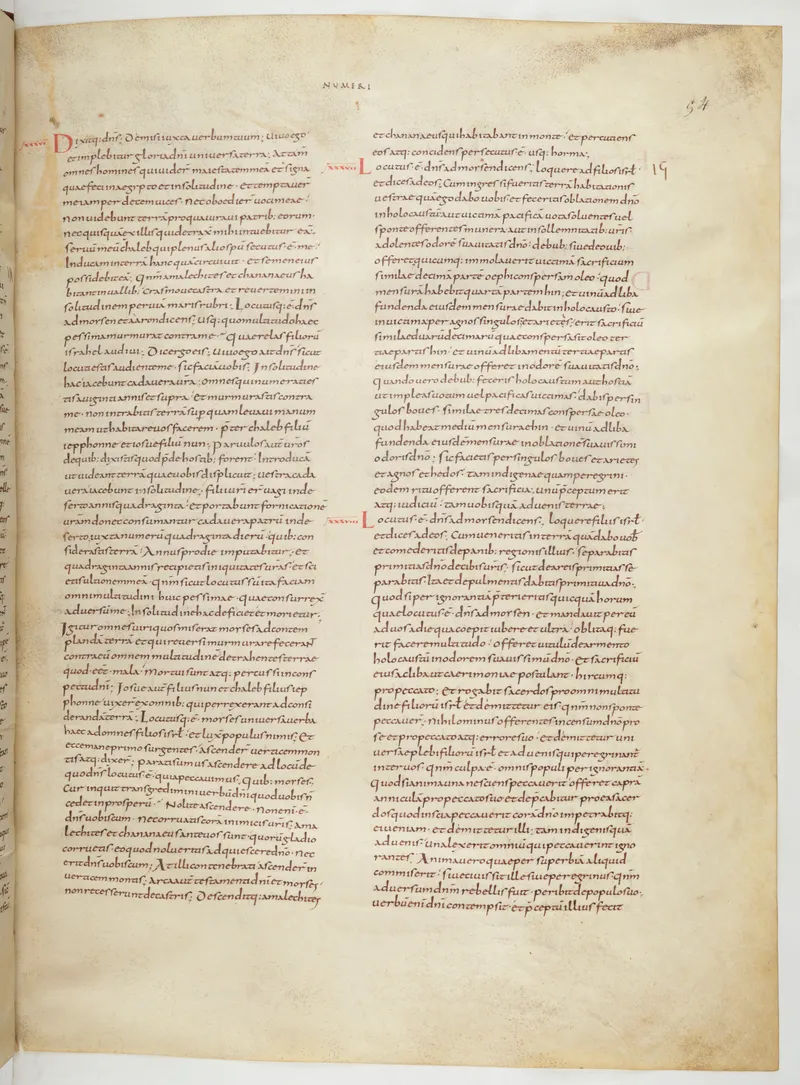 NUMERI
54
xxxvi Dixitq; dns; Demisi iuxta uerbum tuum; Uiuo ego
et implebitur gloria dni uniuersa terra; Attam
omnes homines qui uider maiestatem meam et signa
quae feci in aegypto et in solitudine · et temptauer
me iam per decem uices · nec oboedier uoci meae ·
non uidebunt terrā pro qua iuraui patrib; eorum ·
nec quisquā ex illis qui detraxit mihi intuebitur eā;
seruū meū chaleb qui plenus alio spū secutus ē me ·
Inducam in terrā hanc quā circuiuit · et semen eius
possidebit eā; Qnm amalechites et chananaeus ha
bitant in uallib; cras mouete castra et reuertemini in
solitudinem per uiā maris rubri; Locutusq; ē dns
ad mosen et aaron dicens; Usq; quo multitudo haec
pessima murmurat contra me · Querelas filiorū
israhel audiui; Dic ergo eis; Uiuo ego ait dns sicut
locuti estis audiente me · sic faciā uobis; In solitudine
hac iacebunt cadauera urā; omnes qui numerati es
tis a uiginti annis et supra · et murmurastis contra
me · non intrabitis terrā sup quam leuaui manum
meam ut habitare uos facerem · p̄ter chaleb filiū
iepphonne · et iosue filiū nun; Paruulos aūt uros
de quib; dixistis quod p̄de hostib; forent · Introducā
ut uideant terrā quae uobis displicuit; uestra cada
uera iacebunt in solitudine; filii uri er uagi in de
serto annis quadraginta · et portabunt fornicatione
urām donec consumantur cadauera patrū in de
serto · iuxta numerū quadraginta dierū · quib; con
siderastis terrā; Annus pro die imputabitur; et
quadraginta annis recipietis iniquitates uras · et sci
etis ultionem meā · qnm sicut locutus sū ita faciam
omni multitudini huic pessimae · quae consurrex
aduersū me; In solitudine hac deficiet et morietur;
Igitur omnes uiri quos miserat moses ad contem
plandā terrā et qui reuersi murmurare fecerant
contra eū omnem multitudinē detrahentes terrae
quod eēt mala · mortui sunt atq; percussi in cons
pectu dni; Iosue aūt filius nun et chaleb filius iep
phonne uixer ex omnib; qui perrexerant ad consi
derandā terrā; Locutusq; ē moses uniuersa uerba
haec ad omnes filios isrl · et luxit populus nimis; Et
ecce mane primo surgentes · ascender uerticem mon
tis atq; dixer; parati sumus ascendere ad locū de
quo dns locutus ē · quia peccauimus; Quib; moses;
Cur inquit transgredimini uerbū dni quod uobis n̄
cedet in prosperū · Nolite ascendere · non eni ē
dns uobiscum · ne corruatis corā inimicis uris; Ama
lechites et chananaeus ante uos sunt · quorū gladio
corruetis · eo quod nolueritis adquiescere dno · nec
erit dns uobiscum; At illi contenebrati ascender in
uerticem montis; Arca aūt testamenti dni et moses
non recesserunt de castris; Descenditq; amalechites
et chananaeus qui habitabant in monte · et percutiens
eos atq; concidens persecutus ē · usq; horma;
xxxvii Locutus ē dns ad mosen dicens; Loquere ad filios isrl · 15
et dices ad eos; Cum ingressi fueritis terrā habitationis
uestrae quā ego dabo uobis et feceritis oblationem dno
in holocaustū aut uictimā pacificā uota soluentes uel
sponte offerentes munera aut in sollemnitatib; uris
adolentes odorē suauitatis dno · de bub; siue de ouib;
offeret quicumq; immolauerit uictimā sacrificium
similae decimā partē oephi conspersam oleo · quod
mensurā habebit quartā partem hin; et uinū ad liba
fundenda eiusdem mensurae dabit in holocausto · siue
in uictima per agnos singulos et arietes; erit sacrificiū
similae duarū decimarū quae conspersa sit oleo ter
tiae partis hin · et uinū ad libamentū tertiae partis
eiusdem mensurae offeret in odorē suauitatis dno;
Quando uero de bub; feceris holocaustum aut hostiā
ut impleas uotum uel pacificas uictimas · dabis per sin
gulos boues · similae tres decimas conspersae oleo ·
quod habeat mediū mensurae hin · et uinū ad liba
fundenda eiusdē mensurae in oblatione suauissimi
odoris dno; sic facietis per singulos boues et arietes
et agnos et hedos · tam indigenae quam peregrini ·
eodem ritu offerent sacrificia; unū p̄ceptum erit
atq; iudiciū · tam uobis quā aduenis terrae;
xxxviii Locutus ē dns ad mosen dicens; Loquere filiis isrl ·
et dices ad eos; Cum ueneritis in terrā quā dabo uob
et comederitis de panib; regionis illius · separabitis
primitias dno de cibis uris; sicut de areis primitias se
parabitis · Ita et de pulmentis dabitis primitiua dno;
Quod si per ignorantiā p̄terieritis quicquā horum
quae locutus ē dns ad mosen · et mandauit per eū
ad uos a die qua coepit iubere et ultra · oblitaq; fue
rit facere multitudo · offeret uitulū de armento
holocaustū in odorem suauissimū dno · et sacrificiū
eius ac liba ut caerimoniae postulant · hircumq;
pro peccato; Et rogabit sacerdos pro omni multitu
dine filiorū isrl · et dēmittetur eis · qnm non sponte
peccauer; nihilominus offerentes incensum dno pro
se et pro peccato atq; errore suo · et dēmittetur uni
uersae plebi filiorū isrl et aduenis qui peregrinant
inter uos · qnm culpa ē omnis populi per ignorantiā ·
Quod si anima una nesciens peccauerit offeret caprā
anniculā pro peccato suo et depcabitur pro ea sacer
dos quod inscia peccauerit corā dno · impetrabitq;
ei ueniam · et dēmittetur illi; tam indigenis quā
aduenis · Una lex erit omniū qui peccauerint igno
rantes; Anima uero quae per superbiā aliquid
commiserit · siue ciuis sit ille siue peregrinus · qnm
aduersum dnm rebellis fuit · peribit de populo suo;
uerbū eni dni contempsit · et p̄ceptū illius fecit